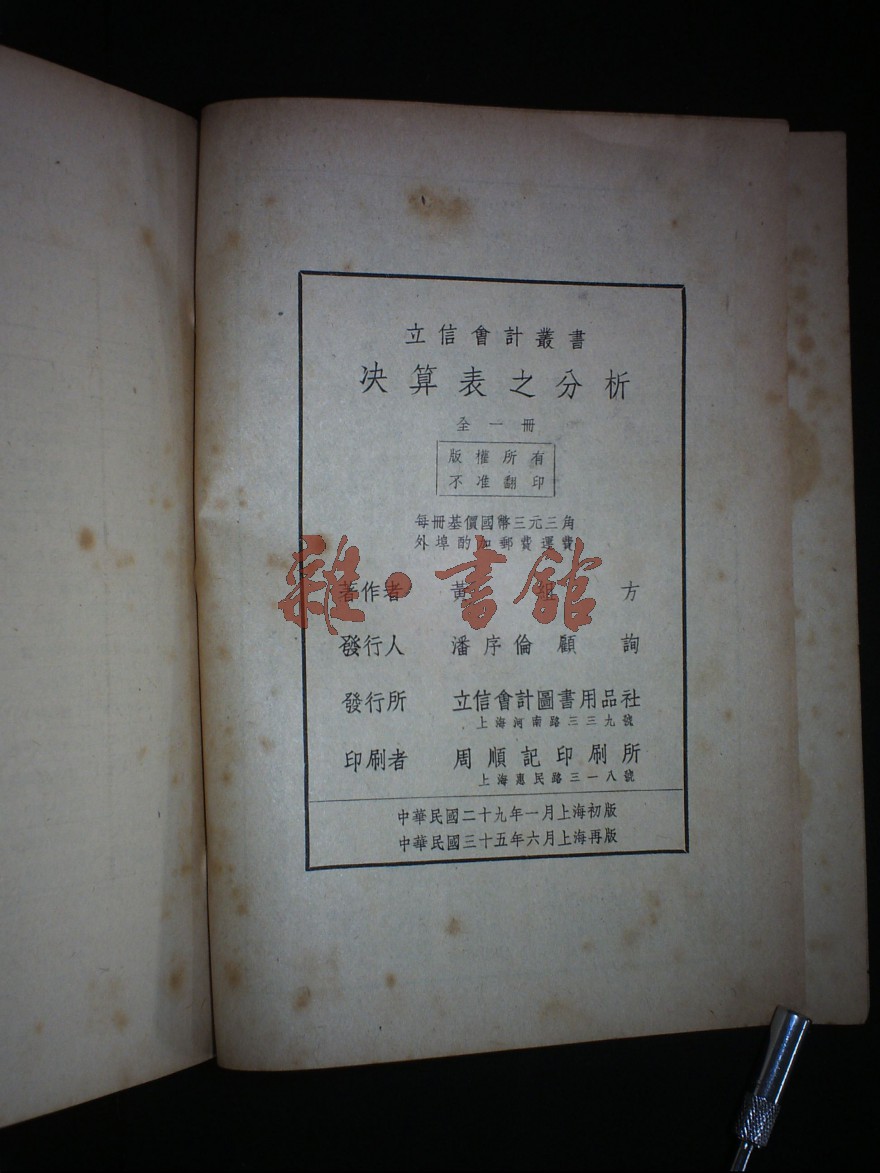 立信會計叢書
決算表之分析
全一冊
版權所有
不准翻印
每冊基價國幣三元三角
外埠酌加郵費運費
著作者 黃 方
發行人 潘序倫 顧詢
發行所 立信會計圖書用品社
上海河南路三三九號
印刷者 周順記印刷所
上海惠民路三一八號
中華民國二十九年一月上海初版
中華民國三十五年六月上海再版
雜·書館